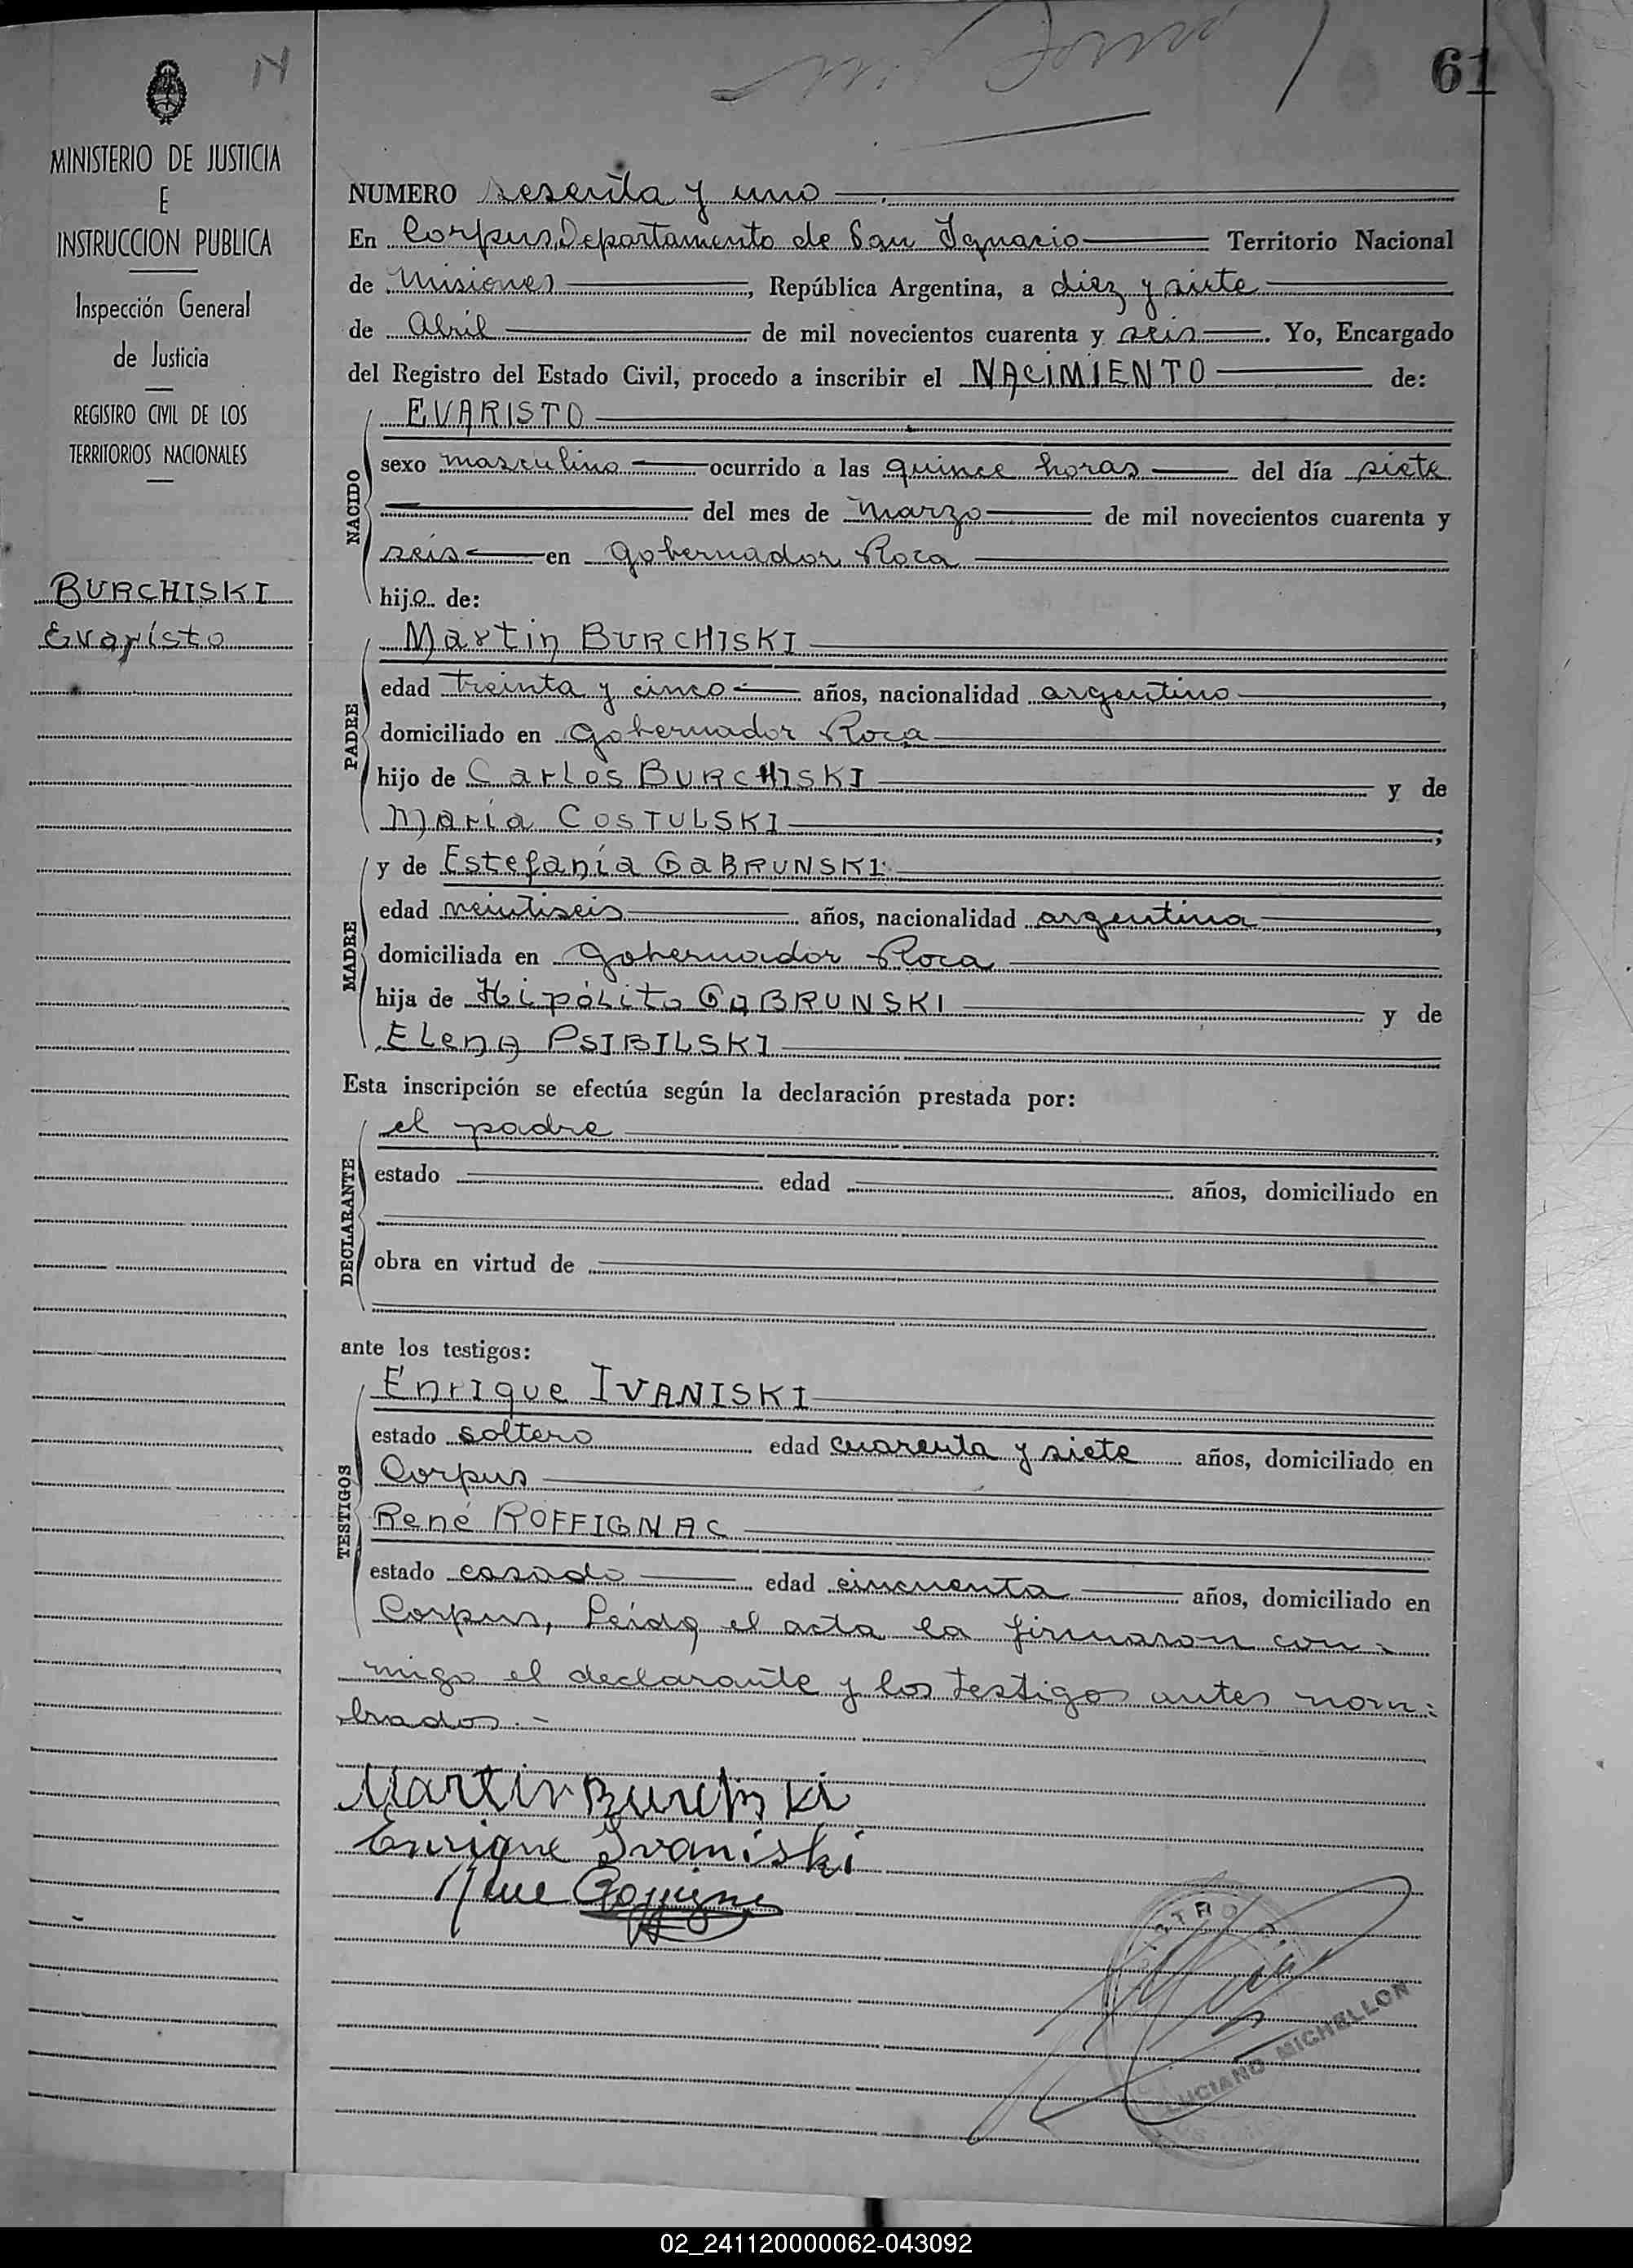 14
61
MINISTERIO DE JUSTICIA
E
INSTRUCCION PUBLICA
Inspección General
de Justicia
REGISTRO CIVIL DE LOS
TERRITORIOS NACIONALES
BURCHISKI
Evaristo
NUMERO sesenta y uno
En Corpus, Departamento de San Ignacio Territorio Nacional
de Misiones, República Argentina, a diez y siete
de Abril de mil novecientos cuarenta y seis. Yo, Encargado
del Registro del Estado Civil, procedo a inscribir el NACIMIENTO de:
NACIDO
EVARISTO
sexo masculino ocurrido a las quince horas del día siete
del mes de Marzo de mil novecientos cuarenta y
seis en Gobernador Roca
hijo de:
PADRE
Martin BURCHISKI
edad treinta y cinco años, nacionalidad argentino,
domiciliado en Gobernador Roca
hijo de Carlos BURCHISKI y de
María COSTULSKI;
MADRE
y de Estefanía GaBRUNSKI
edad veintiseis años, nacionalidad argentina,
domiciliada en Gobernador Roca
hija de Hipólito GaBRUNSKI y de
ELena PSIBILSKI
Esta inscripción se efectúa según la declaración prestada por:
DECLARANTE
el padre
estado edad años, domiciliado en
obra en virtud de
ante los testigos:
TESTIGOS
Enrique IVANISKI
estado soltero edad cuarenta y siete años, domiciliado en
Corpus
René ROFFIGNAC
estado casado edad cincuenta años, domiciliado en
Corpus, Leida el acta la firmaron con-
migo el declarante y los testigos antes nom:
brados.-
Martin Burchski
Enrique Ivaniski
Rene
LUCIANO MICHELLON
02_241120000062-043092